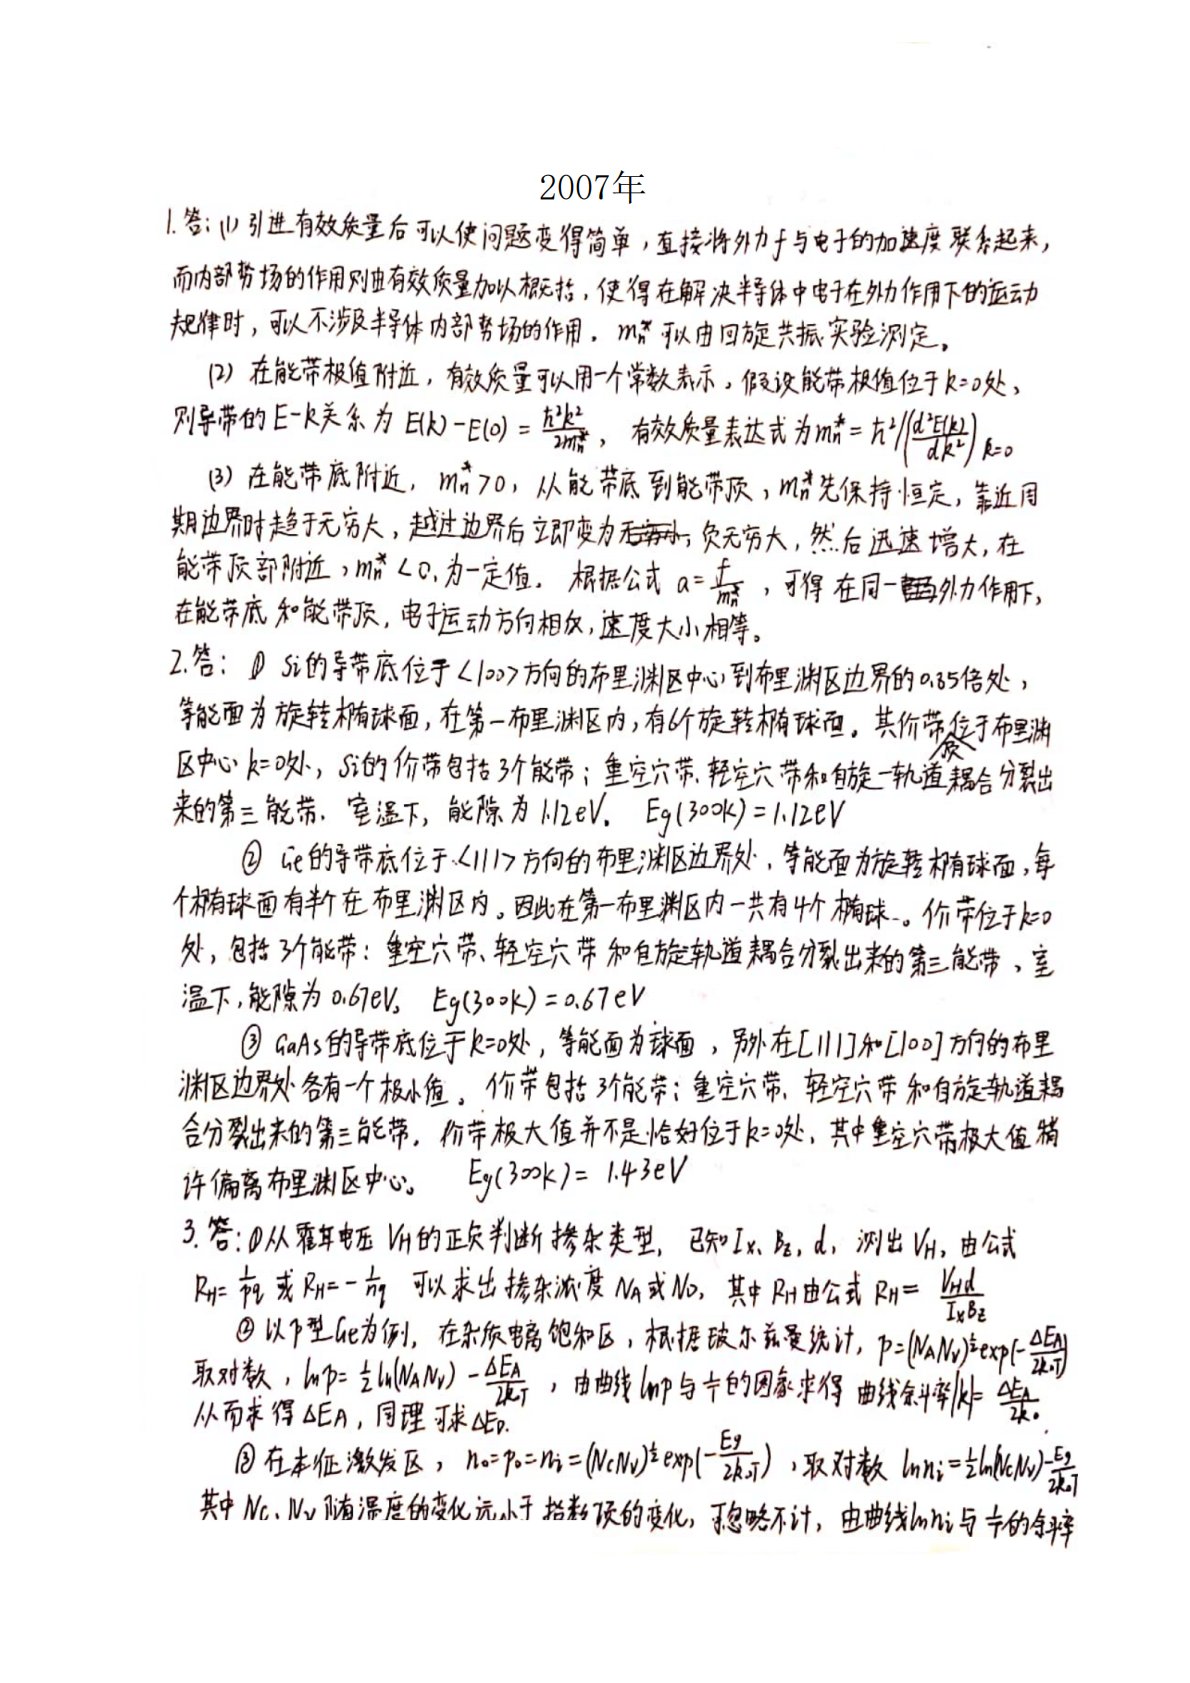 2007年
1.答：(1) 引进有效质量后可以使问题变得简单，直接将外力f与电子的加速度联系起来，
而内部势场的作用则由有效质量加以概括，使得在解决半导体中电子在外力作用下的运动
规律时，可以不涉及半导体内部势场的作用。mn*可以由回旋共振实验测定。
(2) 在能带极值附近，有效质量可以用一个常数表示，假设能带极值位于k=0处，
则导带的E-k关系为 E(k)-E(0) = ħ²k²/2mn*， 有效质量表达式为mn* = ħ²/(d²E(k)/dk²)k=0
(3) 在能带底附近，mn*>0，从能带底到能带顶，mn*先保持恒定，靠近周
期边界时趋于无穷大，越过边界后立即变为负无穷大，然后迅速增大，在
能带顶部附近，mn*<0，为一定值。根据公式 a= f/mn*，可得在同一外力作用下，
在能带底和能带顶，电子运动方向相反，速度大小相等。
2.答：① Si的导带底位于<100>方向的布里渊区中心到布里渊区边界的0.85倍处，
等能面为旋转椭球面，在第一布里渊区内，有6个旋转椭球面。其价带顶位于布里渊
区中心k=0处，Si的价带包括3个能带：重空穴带、轻空穴带和自旋-轨道耦合分裂出
来的第三能带. 室温下，能隙为1.12eV。 Eg(300k)=1.12eV
② Ge的导带底位于<111>方向的布里渊区边界处，等能面为旋转椭球面，每
个椭球面有半个在布里渊区内。因此在第一布里渊区内一共有4个椭球。价带位于k=0
处，包括3个能带：重空穴带、轻空穴带和自旋轨道耦合分裂出来的第三能带、室
温下，能隙为0.67eV。 Eg(300k)=0.67eV
③ GaAs的导带底位于k=0处，等能面为球面，另外在[111]和[100]方向的布里
渊区边界处各有一个极小值。价带包括3个能带：重空穴带、轻空穴带和自旋轨道耦
合分裂出来的第三能带，价带极大值并不是恰好位于k=0处，其中重空穴带极大值稍
许偏离布里渊区中心。 Eg(300k)= 1.43eV
3.答：①从霍耳电压VH的正负判断掺杂类型，已知Ix、Bz，d，测出VH，由公式
RH= 1/pq 或 RH=-1/nq 可以求出掺杂浓度NA或ND，其中RH由公式 RH= VHd/IxBz
② 以P型Ge为例，在杂质电离饱和区，根据玻尔兹曼统计，p=(NANV)^½exp(-ΔEA/2k0T)
取对数，lnp=½ln(NANV) - ΔEA/2k0T，由曲线lnp与1/T的图象求得曲线斜率|k|= ΔEA/2k0
从而求得ΔEA，同理可求ΔED.
③ 在本征激发区，n0=p0=ni=(NcNv)^½exp(-Eg/2k0T)，取对数 lnni=½ln(NcNv)-Eg/2k0T
其中Nc、Nv随温度的变化远小于指数项的变化，可忽略不计，由曲线lnni与1/T的斜率